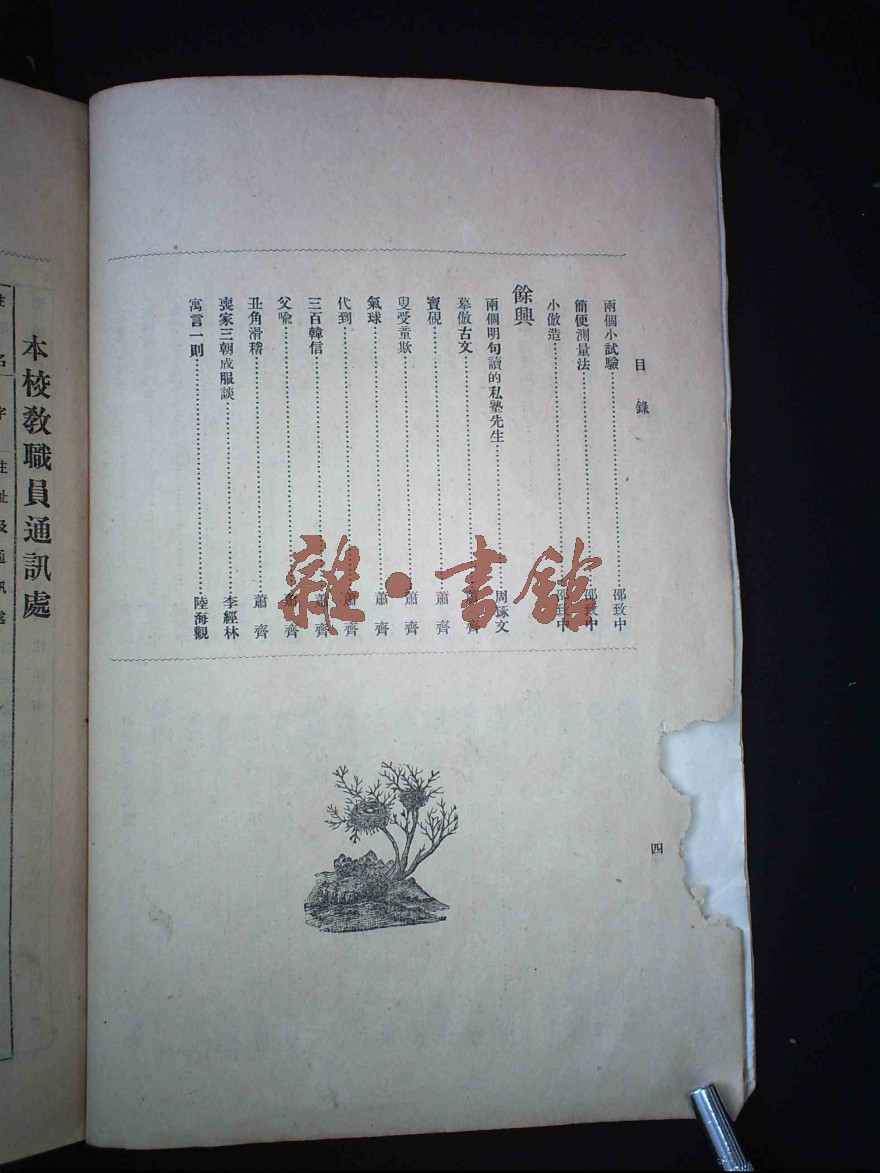 目錄
兩個小試驗……邵致中
簡便測量法……邵致中
小倣造……邵致中
餘興
兩個明句讀的私塾先生……周琢文
摹倣古文……蕭齊
寶硯……蕭齊
叟受童欺……蕭齊
氣球……蕭齊
代到……蕭齊
三百韓信……蕭齊
父喩……蕭齊
丑角滑稽……蕭齊
喪家三朝成服談……李經林
寓言一則……陸海觀
四
雜·書館
本校教職員通訊處
姓名字
住址及通訊處